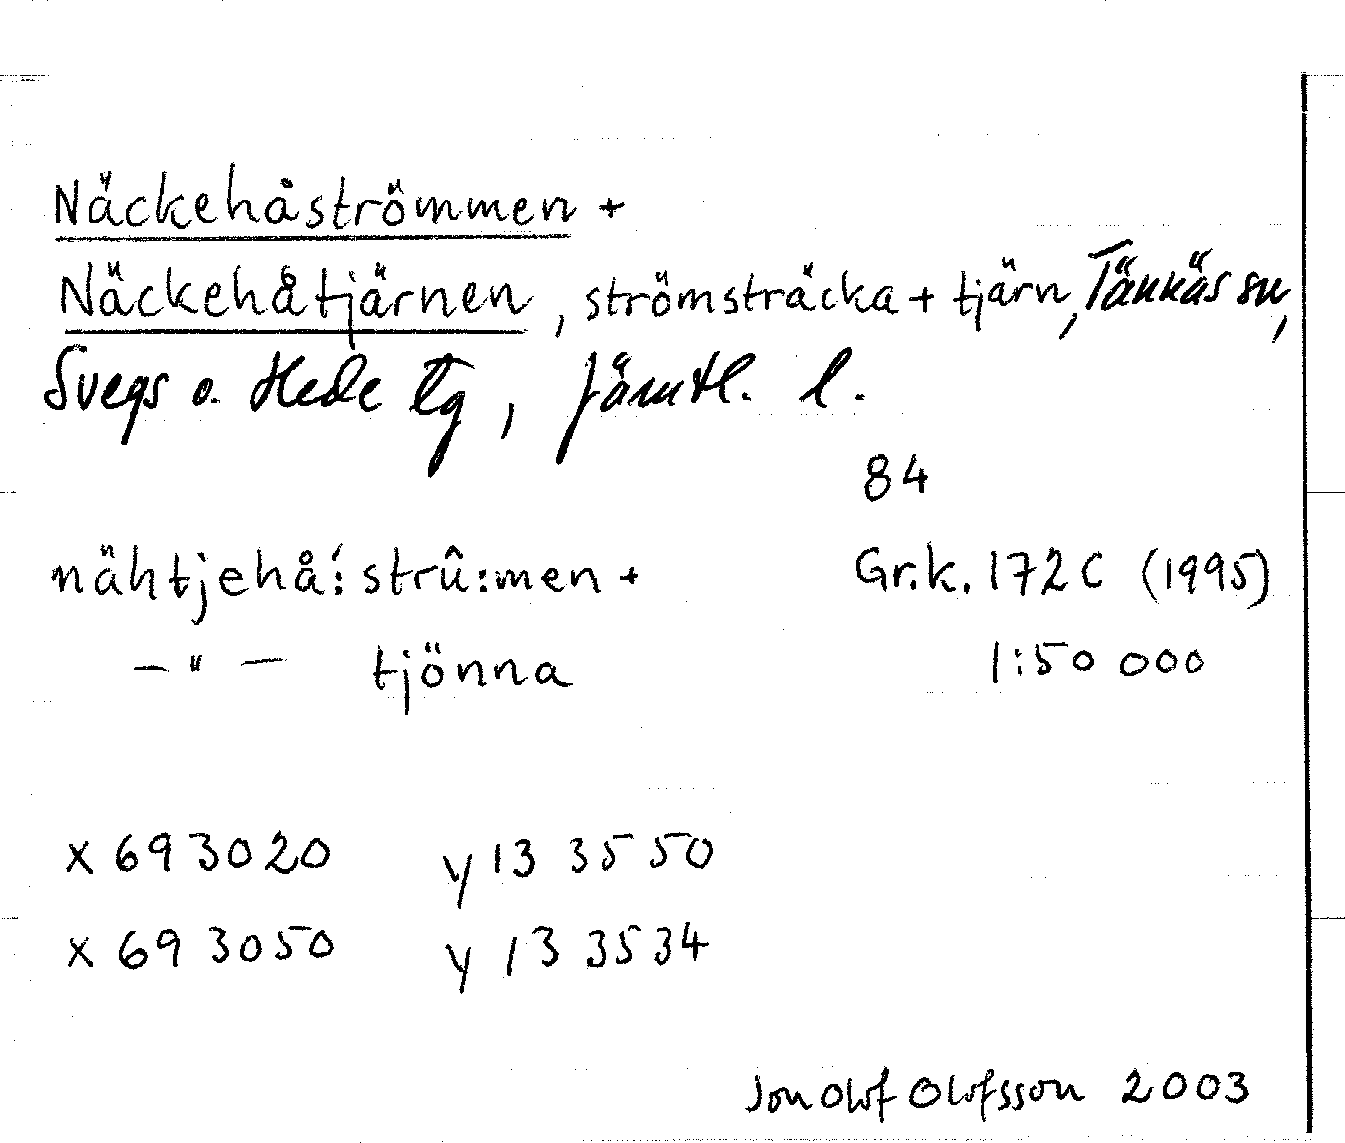 Näckehåströmmen +
Näckehåtjärnen, strömsträcka + tjärn, Tännäs sn,
Svegs o. Hede tg, Jämtl. l.
84
nähtjehå:́ strû:men + Gr.k. 172 C (1995)
— " — tjönna 1:50 000
x 693020 y 133550
x 693050 y 133534
Jon Olof Olofsson 2003